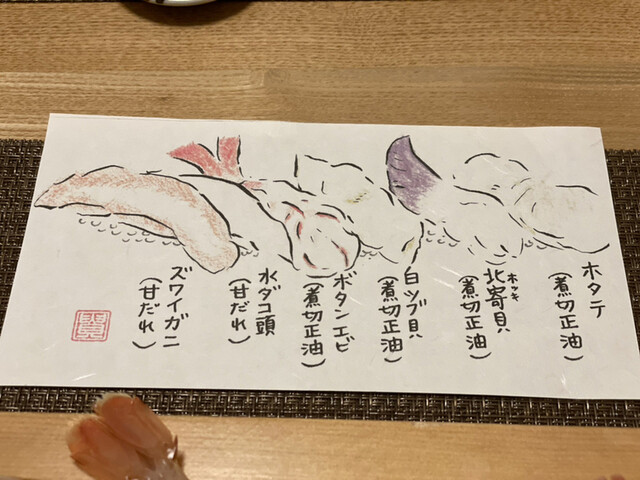 ホタテ
(煮切正油)
北寄貝
ホッキ
(煮切正油)
白ツブ貝
(煮切正油)
ボタンエビ
(煮切正油)
水ダコ頭
(甘だれ)
ズワイガニ
(甘だれ)